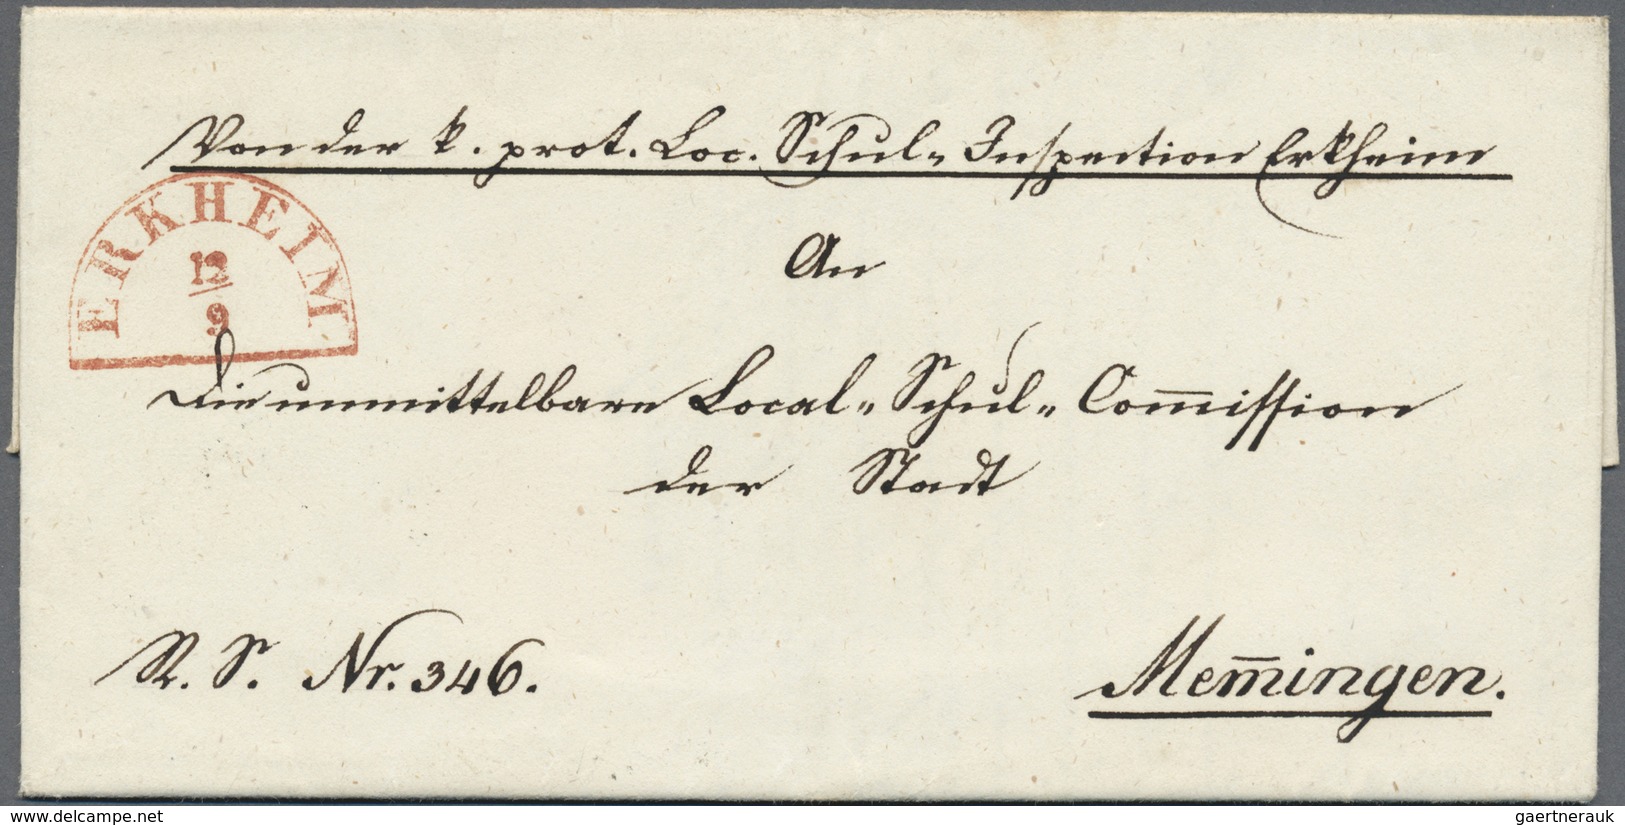 Von der k. prot. Loc. Schul-Inspection Erkheim
ERKHEIM
12
9
An
Die unmittelbare Local-Schul-Com̅ission
der Stadt
R. S. Nr. 346.
Mem̅ingen.
delcampe.net
gaertnerauk